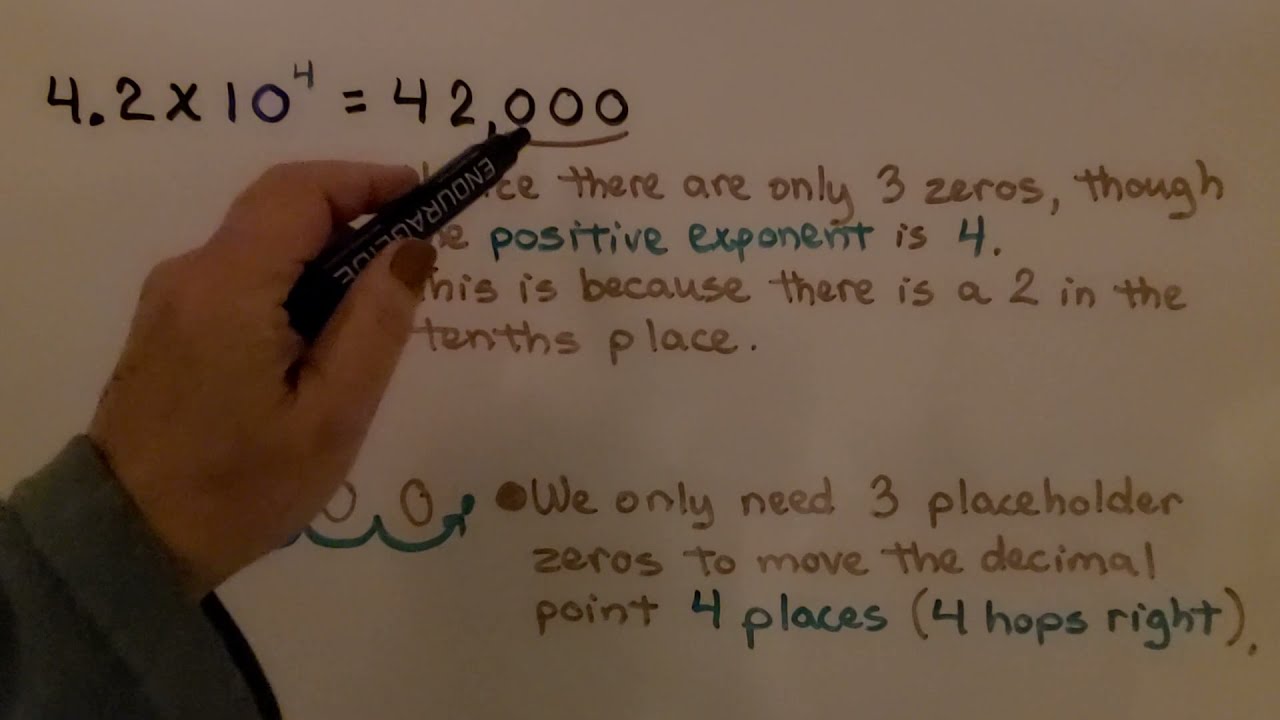 4.2×10⁴ = 42,000
ENDURAGLIDE
there are only 3 zeros, though
positive exponent is 4.
This is because there is a 2 in the
tenths place.
0 0 • We only need 3 placeholder
zeros to move the decimal
point 4 places (4 hops right).